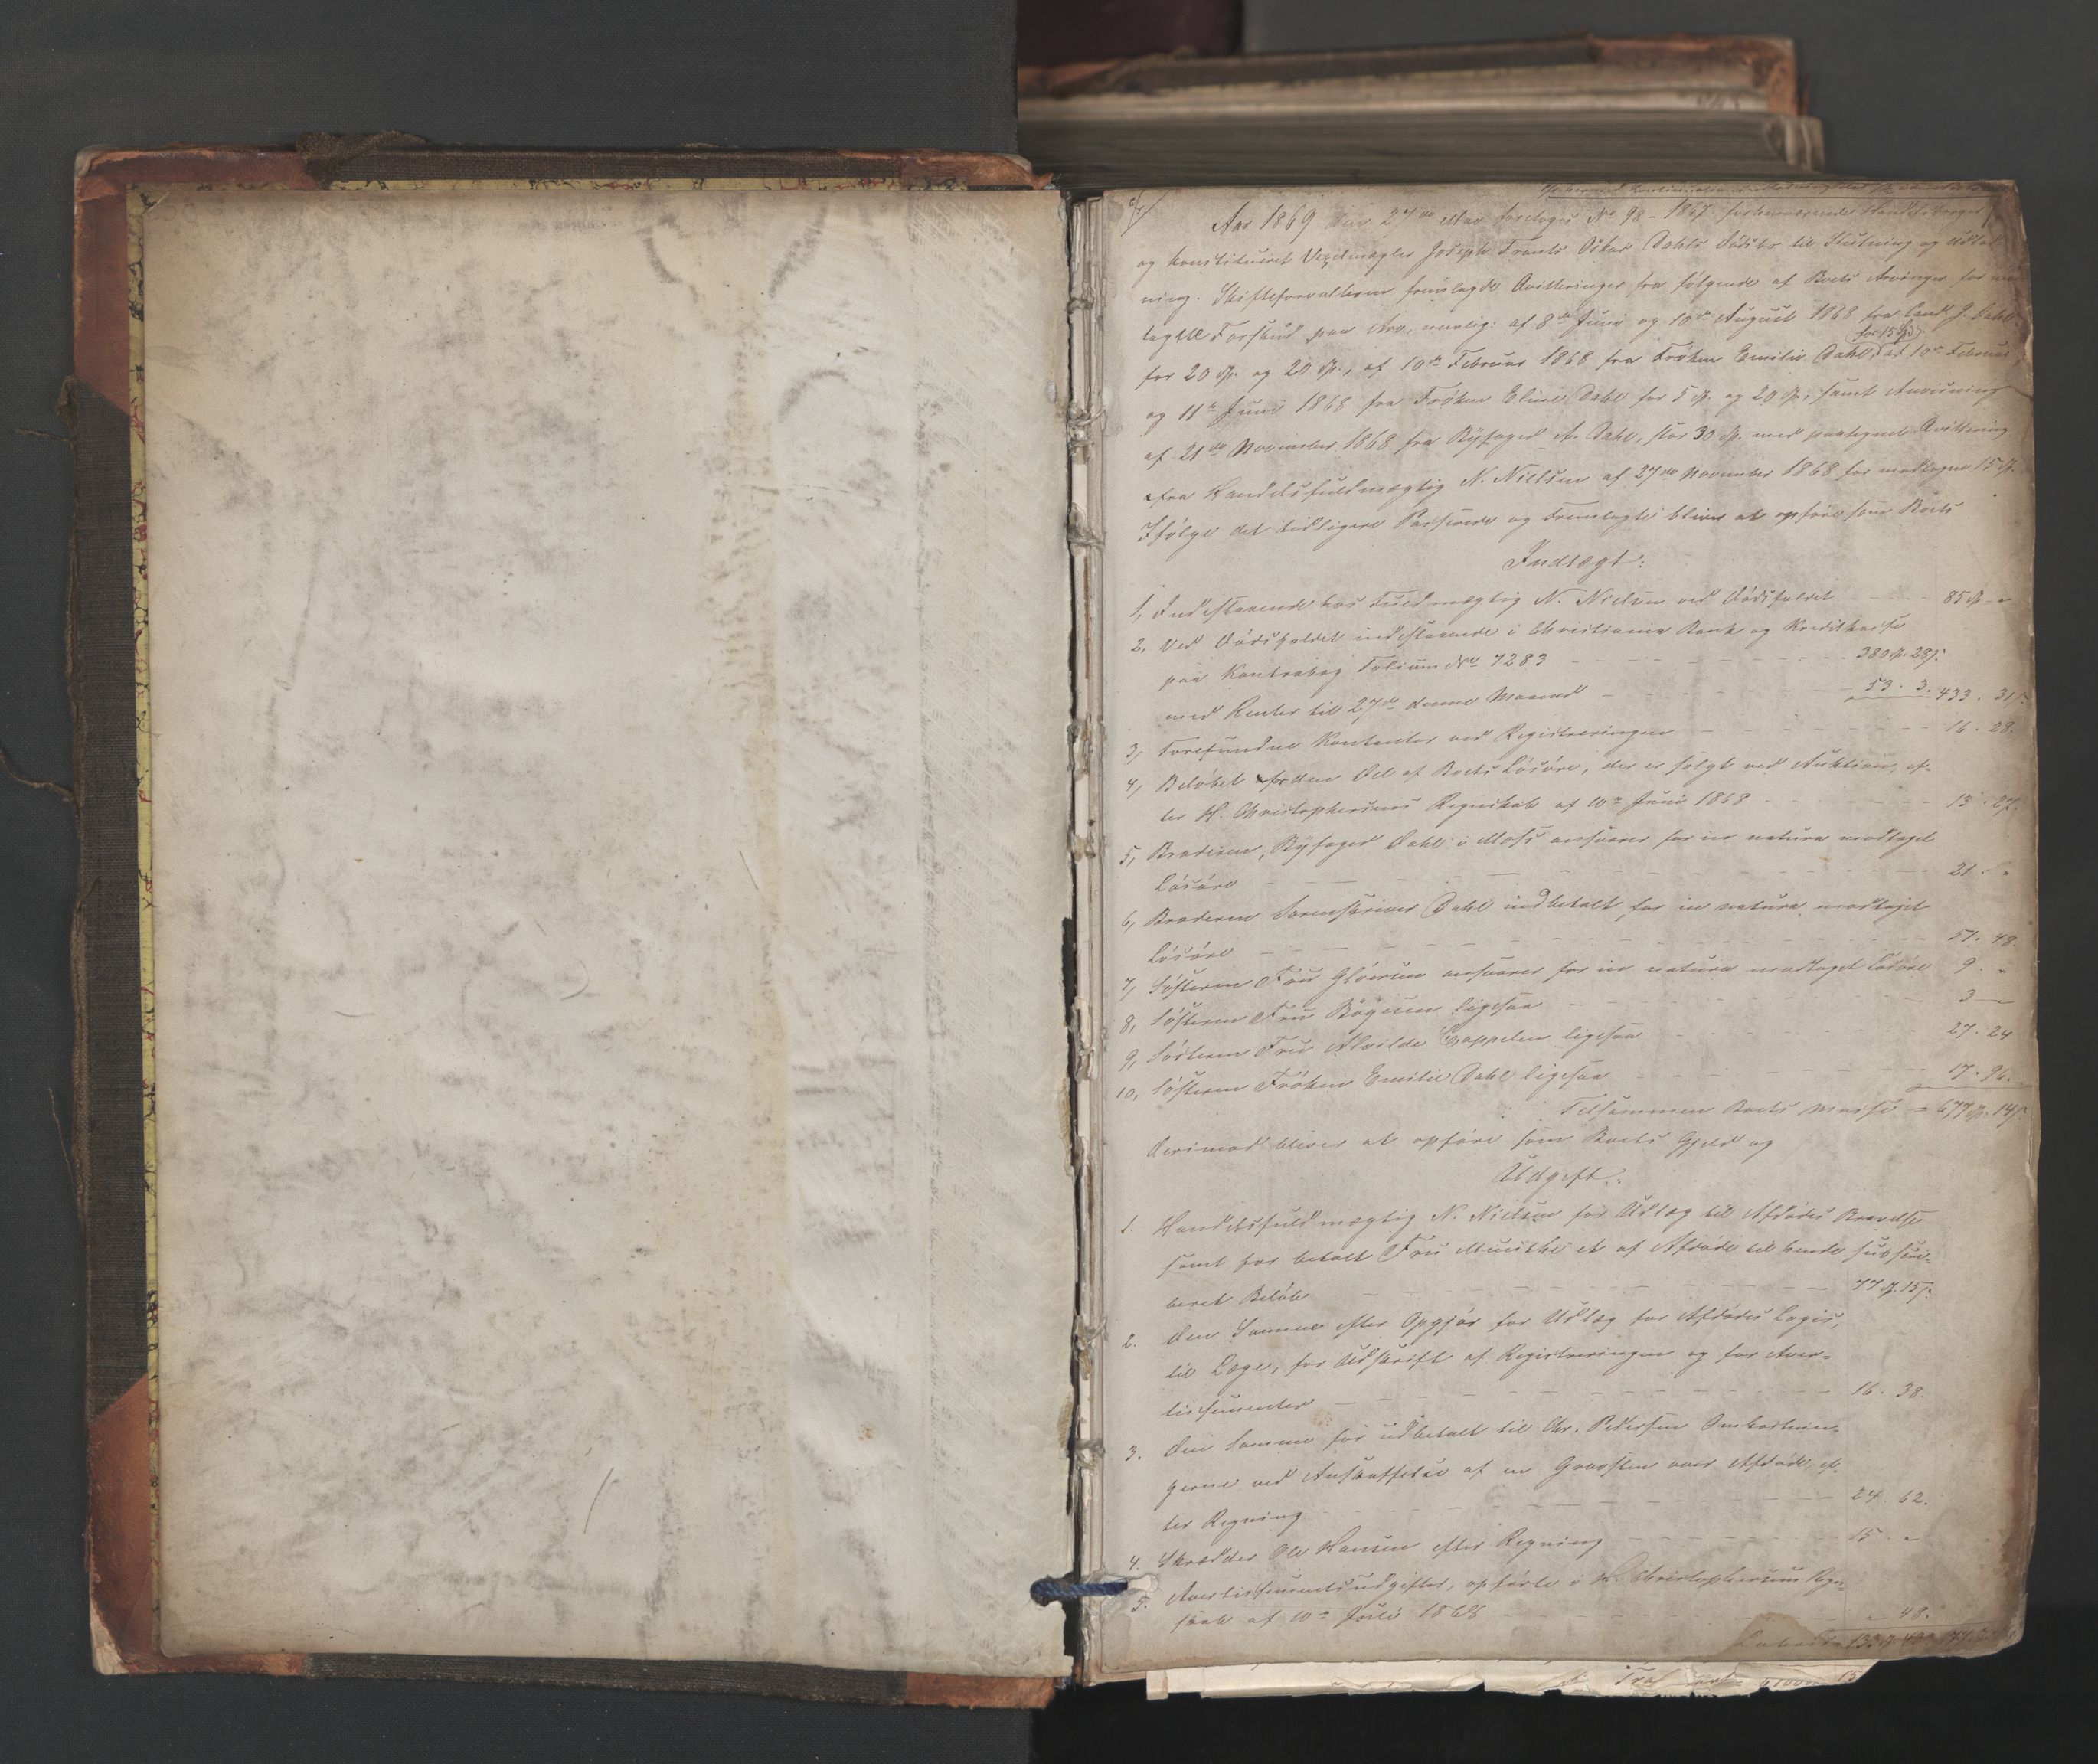 Aar 1869 den 27de Mai foretoges No 98 - 1867 forhenværende Handelsborger
og konstitueret Vexelmægler Joseph Frants Oskar Dahls Dødsbo til Slutning og Udlod
ning. Skifteforvalteren fremlagde Qvitteringer fra følgende af Boets Arvinger for mod
tagne Forskud paa Arv, nemlig: af 8de Juni og 10de August 1868 fra Cand. J. Dahl
for 20 Sp. og 20 Sp., af 10de Februar 1868 fra Frøken Emilie Dahl for 15 Sp., af 10de Februar
og 11te Juni 1868 fra Frøken Elise Dahl for 5 Sp. og 20 Sp., samt Anvisning
af 21de November 1868 fra Byfoged A. Dahl, stor 30 Sp. med paategnet Qvittering
fra Handelsfuldmægtig N. Nielsen af 27de November 1868 for modtagne 15 Sp.
Ifølge det tidligere Passerede og Fremlagte bliver at opføre som Boets
Indtægt:
1, Indestaaende hos Fuldmægtig N. Nielsen ved Dødsfaldet 85 Sp "
2, Ved Dødsfaldet indestaaende i Christiania Bank og Kreditkasse
paa Kontrabog Folium No 7283 380 Sp. 28 s.
med Renter til 27de denne Maaned 53. 3. 433. 31 s.
3, Forefundne Kontanter ved Registreringen 16. 28.
4, Beløbet for den Del af Boets Løsøre, der er solgt ved Auktion, ef-
ter H. Christophersens Regnskab af 10de Juni 1868 13. 27.
5, Broderen, Byfoged Dahl i Moss ansvarer for in natura modtaget
Løsøre 21. "
6, Broderen Dahl indbetalt for in natura modtaget
Løsøre 51. 48.
7, Søsteren Fru ansvarer for in natura modtaget Løsøre 9. "
8, Søsteren Fru ligesaa 3 "
9, Søsteren Fru Alvilde Cappelen ligesaa 27. 24
10, Søsteren Frøken Emilie Dahl ligesaa 17. 96.
Tilsammen Boets Masse = 677 Sp. 14 s.
Derimod bliver at opføre som Boets Gjæld og
Udgift:
1. Handelsfuldmægtig N. Nielsen for Udlæg til Afdødes Begravelse
samt for betalt Fru Munthe et af Afdøde til hende subskri-
beret Beløb 77 Sp. 15 s.
2. Den Samme efter Opgjør for Udlæg for Afdødes Logis,
til Læge, for Udskrift af Registreringen og for Aver-
tissementer 16. 38.
3. Den Samme for udbetalt til Chr. Pedersen Omkostnin-
gerne ved Anskaffelse af en Gravsten over Afdøde, ef-
ter Regning 24. 62.
4. Skrædder Ole Hansen efter Regning 15. "
5. Avertissementsudgifter, opførte i H. Christophersens Regn-
skab af 10de Juli 1868 " 48.